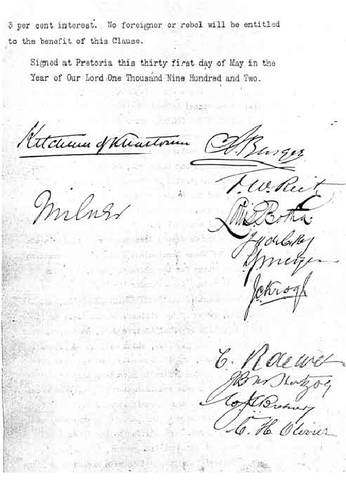 3 per cent interest. No foreigner or rebel will be entitled
to the benefit of this Clause.
Signed at Pretoria this thirty first day of May in the
Year of Our Lord One Thousand Nine Hundred and Two.
Kitchener of Khartoum
Milner
S. Burger
F. W. Reitz
Louis Botha
L J Meyer
J C Krogh
C. R de Wet
J B M Hertzog
C. H. Olivier